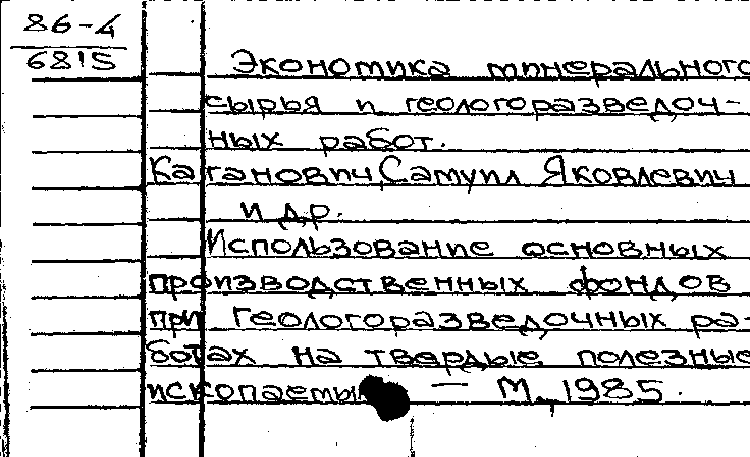 86-4
6815
Экономика минерального
сырья и геологоразведоч-
ных работ.
Каганович, Самуил Яковлевич
и др.
Использование основных
производственных фондов
при геологоразведочных ра-
ботах на твердые полезные
ископаемы — М., 1985.